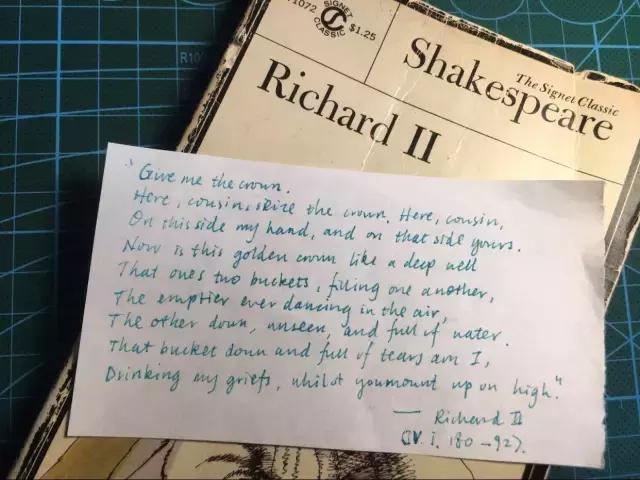 1072
SIGNET
CLASSIC
$1.25
The Signet Classic
Shakespeare
Richard II
"Give me the crown.
Here, cousin, seize the crown. Here, cousin,
On this side my hand, and on that side yours.
Now is this golden crown like a deep well
That ones two buckets, filling one another,
The emptier ever dancing in the air,
The other down, unseen, and full of water.
That bucket down and full of tears am I,
Drinking my griefs, whilst you mount up on high."
— Richard II
(IV. i. 180-92).